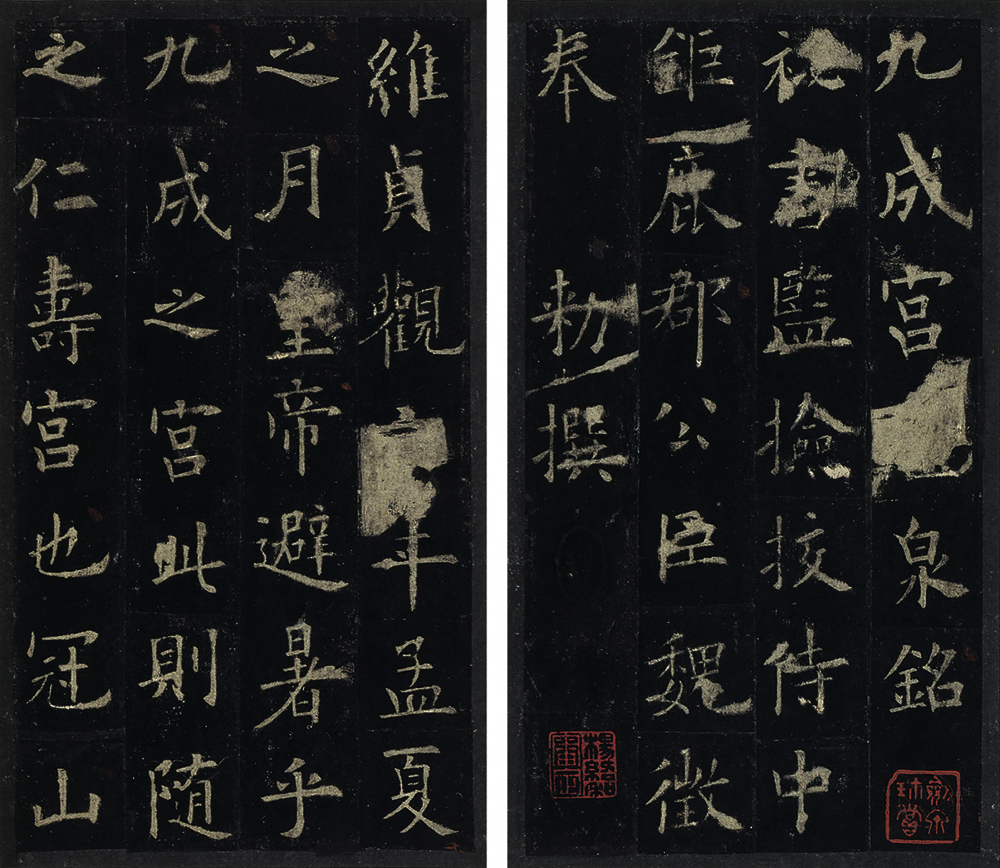 九成宮泉銘
祕書監撿挍侍中
鉅鹿郡公臣魏徵
奉勑撰
維貞觀年孟夏
之月皇帝避暑乎
九成之宮此則随
之仁壽宮也冠山